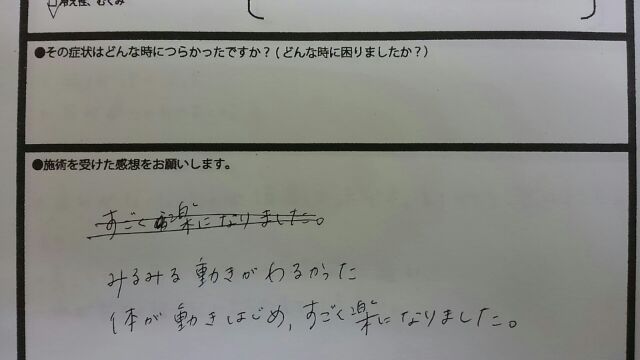 冷え性、むくみ
●その症状はどんな時につらかったですか？(どんな時に困りましたか？)
●施術を受けた感想をお願いします。
すごく楽になりました。
みるみる動きがわるかった
体が動きはじめ、すごく楽になりました。